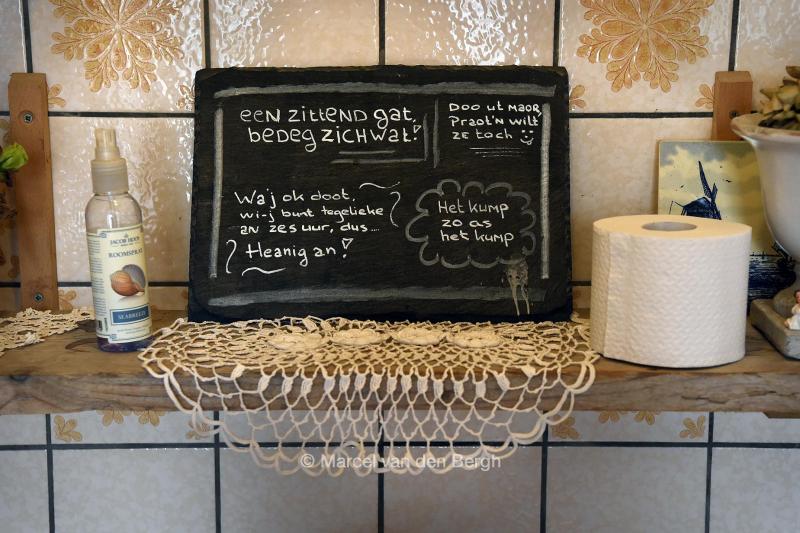 een zittend gat,
bedeg zich wat!
Doo ut maor,
Praot'n wilt
ze toch
Waj ok doot,
wi-j bunt tegelieke
an zes uur, dus...
Heanig an!
Het kump
zo as
het kump
JACOB HOOY
ROOMSPRAY
SEABREEZE
© Marcel van den Bergh